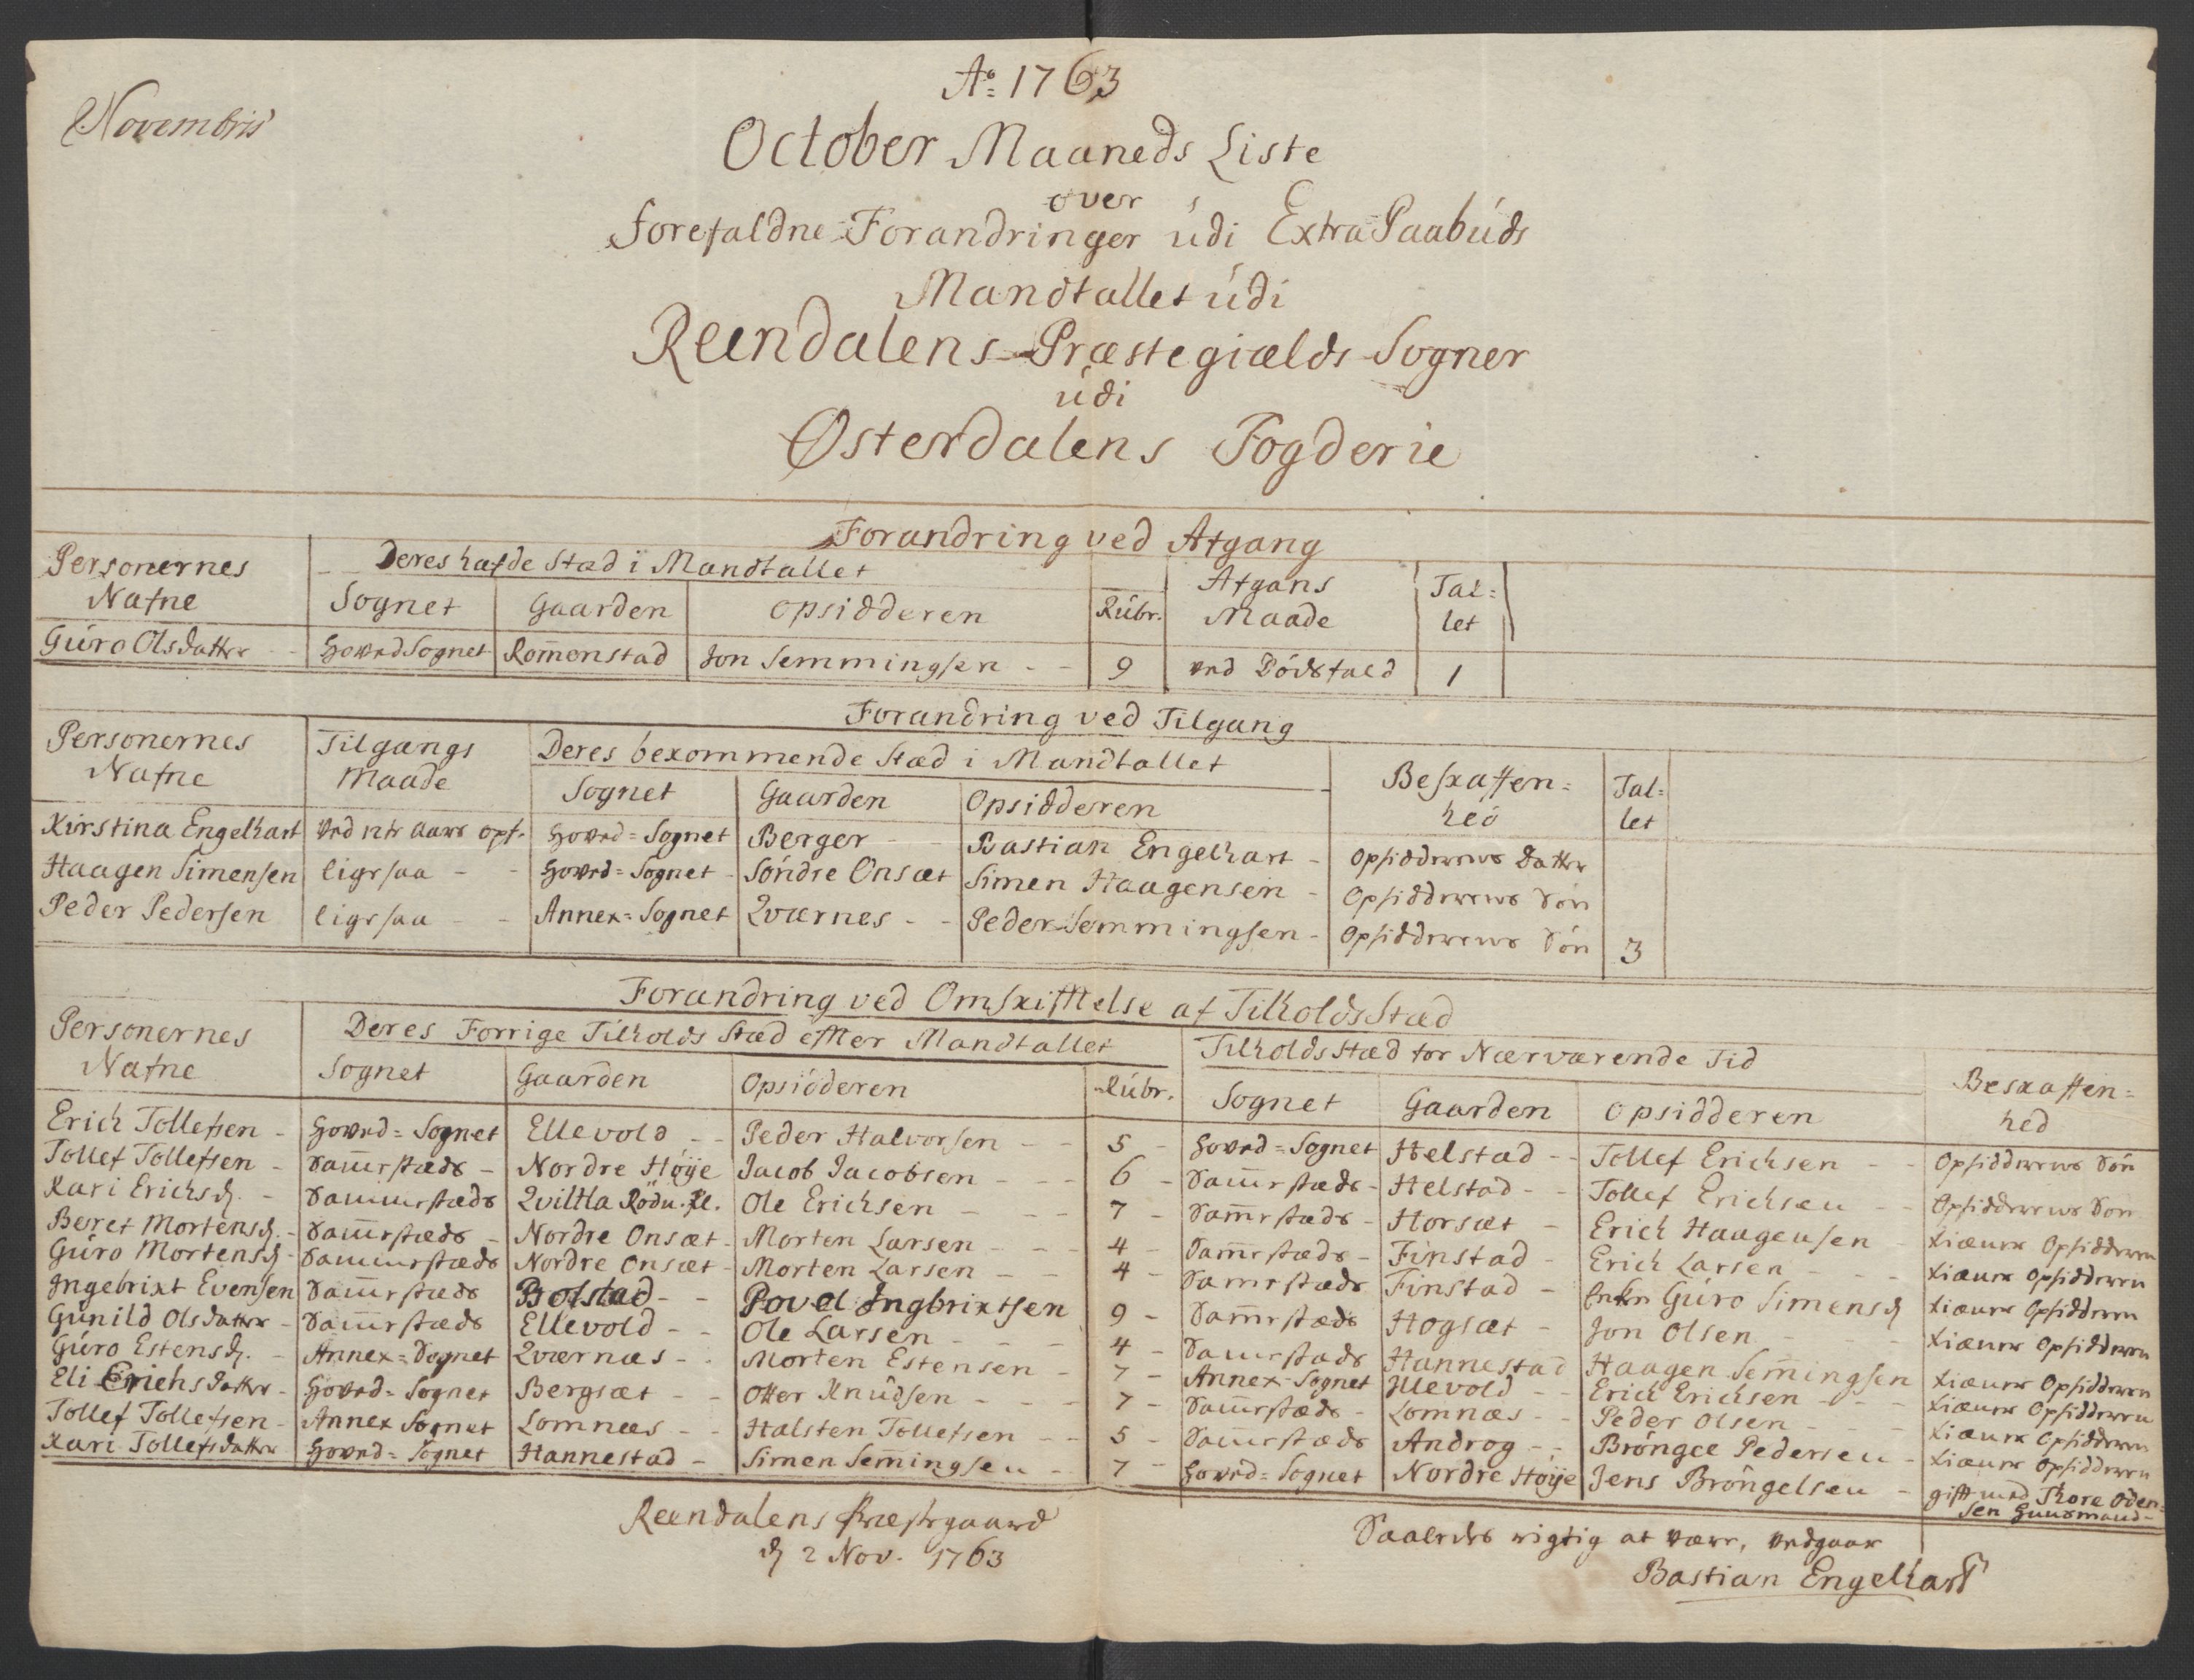 Novembris
Aº: 1763
October Maaneds Liste
over
forefaldne Forandringer udi Extra Paabuds
Mandtallet udi
Reendalens Præstegiælds Sogner
udi
Østerdalens Fogderie
Forandring ved Afgang
Personernes Nafne | Deres hafde Stæd i Mandtallet | Afgans Maade | Tal=let
Sognet | Gaarden | Opsidderen | Rubr.
Guro Olsdatter - | Hoved Sognet | Rom̅enstad | Jon Semmingsen - - | 9 | ved Dødsfald | 1
Forandring ved Tilgang
Personernes Nafne | Tilgangs Maade | Deres bekommende Stæd i Mandtallet | Beskaffen=hed | Tal=let
Sognet | Gaarden | Opsidderen
Kirstina Engelhart | ved aars | Hoved=Sognet | Berger - - | Bastian Engelhart - | Opsidderens Datter
Haagen Simensen | ligesaa - - | Hoved=Sognet - | Søndre Onsæt | Simen Haagensen - | Opsidderens Søn
Peder Pedersen | ligesaa - - | Annex=Sognet | Qværnes - - | Peder Semmingsen - | Opsidderens Søn | 3
Forandring ved Omskiftelse af Tilholds Stæd
Personernes Nafne | Deres Forrige Tilholds Stæd efter Mandtallet | Tilholds Stæd for Nærværende Tid | Beskaffen=hed
Sognet | Gaarden | Opsidderen | Rubr. | Sognet | Gaarden | Opsidderen
Erich Tollefsen - | Hoved=Sognet | Ellevold - - | Peder Halvorsen - - | 5 - | Hoved=Sognet | Helstad - - | Tollef Erichsen - - | Opsidderens Søn
Tollef Tollefsen - | Sam̅estæds - | Nordre Høÿe | Jacob Jacobsen - - - | 6 - | Sam̅estæds - | Helstad - - | Tollef Erichsen - - | Opsidderens Søn
Kari Erichsd. - | Sammestæds | Qviltla | Ole Erichsen - - - | 7 - | Sam̅estæds - | Horsæt - | Erich Haagensen - | tiæner Opsidderen
Beret Mortensd. - | Sam̅estæds - | Nordre Onsæt - | Morten Larsen - - - | 4 - | Sam̅estæds - | Finstad - | Erich Larsen - - - | tiæner Opsidderen
Guro Mortensd - | Sammestæds | Nordre Onsæt - | Morten Larsen - - | 4 - | Samestæds | Finstad - | Enken Guro Simensd | tiæner Opsidderen
Ingebrixt Evensen | Sam̅estæds | Bolstad - - | Povel Ingbrixtsen | 9 - | Sam̅estæds | Hogsæt - | Jon Olsen - - - | tiæner Opsidderen
Gunild Olsdatter - | Sam̅estæds | Ellevold - - | Ole Larsen - - - | 4 - | Samestæds | Hannestad | Haagen Sem̅ingsen | tiæner Opsidderen
Guro Estensd. - | Annex=Sognet | Qværnæs - - | Morten Estensen - | 7 - | Annex-Sognet | Illevold - - | Erich Erichsen - - - | tiæner Opsidderen
Eli Erichsdatter - | Hoved=Sognet | Bergsæt - - | Otter Knudsen - - - | 7 - | Sam̅estæds - | Lomnæs - - | Peder Olsen - - | tiæner Opsidderen
Tollef Tollefsen - | Annex Sognet | Lomnæs - - | Halsten Tollefsen - - | 5 - | Sam̅estæds | Androg - - | Bröngel Pedersen - | tiæner Opsidderen
Kari Tollefsdatter | Hoved=Sognet | Hannestad - | Simen Sem̅ingsen - - | 7 - | Hoved=Sognet | Nordre Høÿe | Jens Bröngelsen - | gift med Thore Oden=sen Huusmand -
Reendalens Præstegaard
d. 2 Nov. 1763
Saaledes rigtig at være, vedgaar
Bastian Engelhart